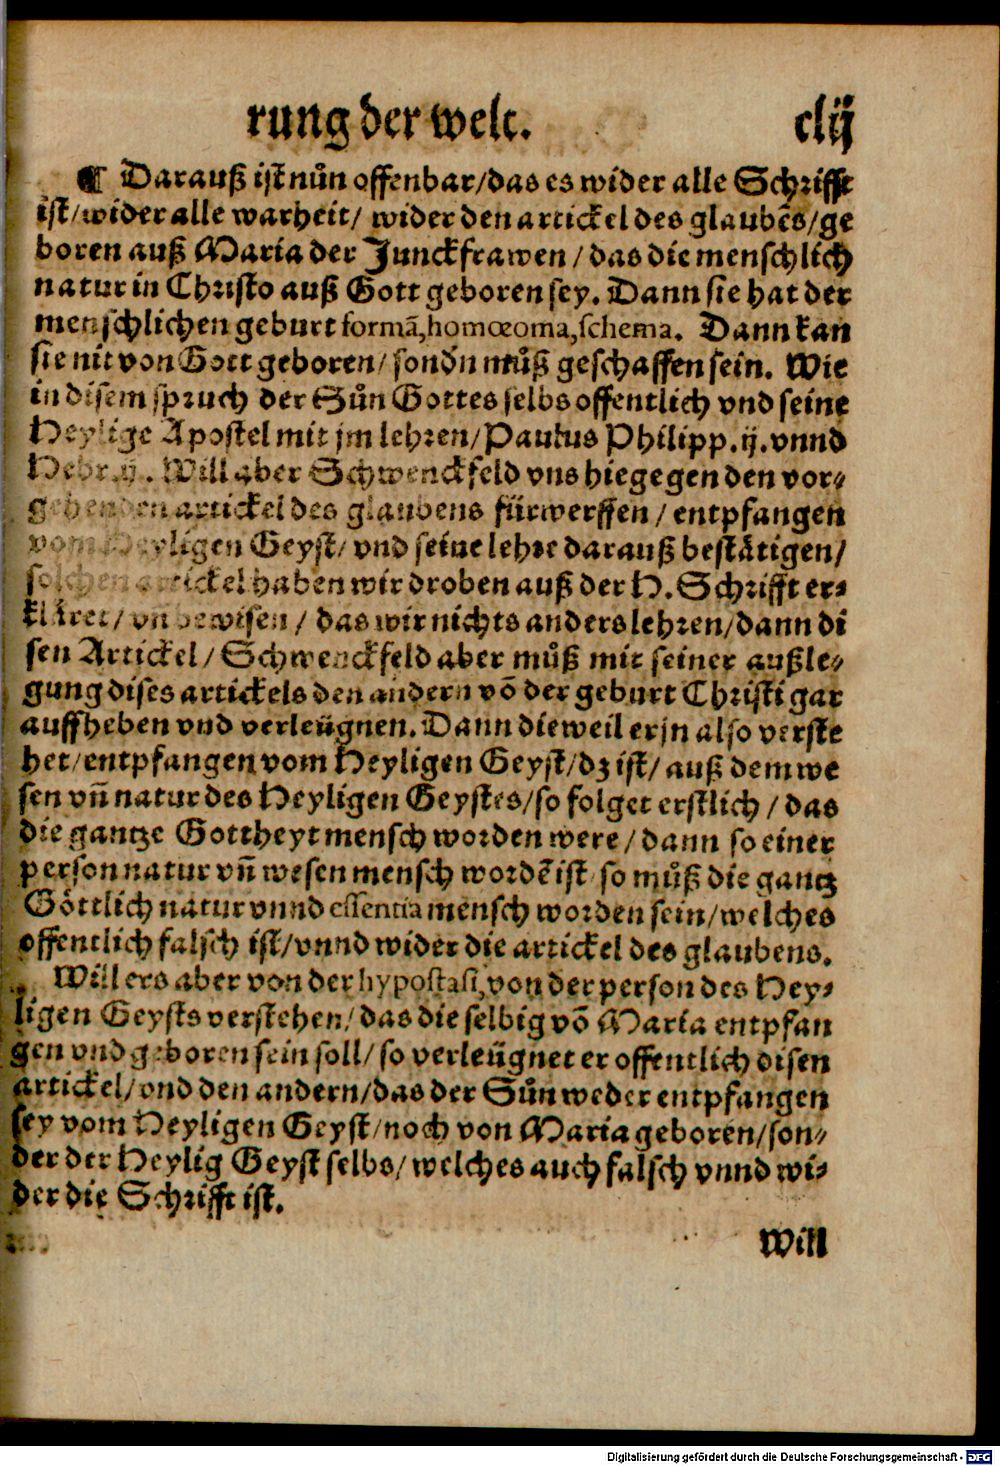 rung der welt. clij
¶ Darauß ist nůn offenbar/das es wider alle Schrifft
ist/wider alle warheit/ wider den artickel des glaubẽs/ge
boren auß Maria der Junckfrawen/das die menschlich
natur in Christo auß Gott geboren sey. Dann sie hat der
menschlichen geburt formã,homœoma,schema. Dann kan
sie nit von Gott geboren/sondn můß geschaffen sein. Wie
in disem spruch der Sůn Gottes selbs offentlich vnd seine
Heylige Apostel mit jm lehren/Paulus Philipp.ij.vnnd
Hebr.ij. Will aber Schwenckfeld vns hiegegen den vor-
gehenden artickel des glaubens fürwerffen/entpfangen
vom Heyligen Geyst/vnd seine lehre darauß bestätigen/
solchen artickel haben wir droben auß der H.Schrifft er-
kläret/vñ bewisen/das wir nichts anders lehren/dann di
sen Artickel/Schwenckfeld aber můß mit seiner außle-
gung dises artickels den andern võ der geburt Christi gar
auffheben vnd verleügnen.Dann dieweil er jn also verste
het/entpfangen vom Heyligen Geyst/dz ist/auß dem we
sen vñ natur des Heyligen Geystes/so folget erstlich/das
die gantze Gottheyt mensch worden were/dann so einer
person natur vñ wesen mensch wordẽ ist/so můß die gantz
Göttlich natur vnnd essentia mensch worden sein/welches
offentlich falsch ist/vnnd wider die artickel des glaubens.
Will ers aber von der hypostasi,von der person des Hey-
ligen Geysts verstehen/das die selbig võ Maria entpfan
gen vnd geboren sein soll/so verleügnet er offentlich disen
artickel/vnd den andern/das der Sůn weder entpfangen
sey vom Heyligen Geyst/noch von Maria geboren/son-
der der Heylig Geyst selbs/welches auch falsch vnnd wi-
der die Schrifft ist.
Will
Digitalisierung gefördert durch die Deutsche Forschungsgemeinschaft - DFG